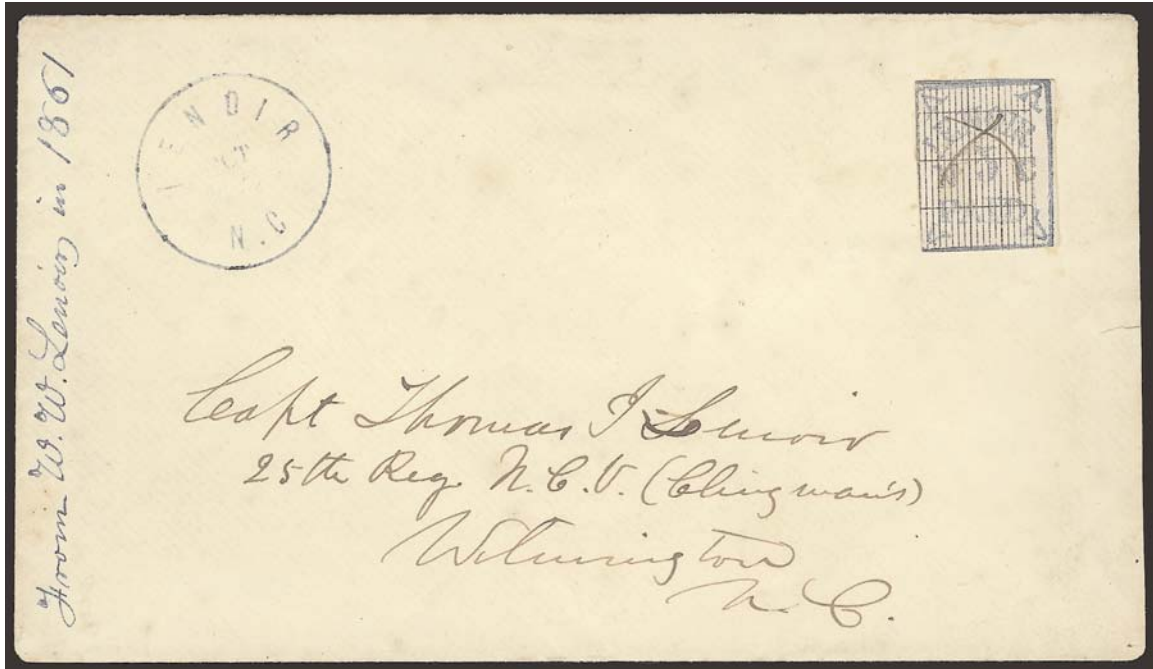 From W. W. Lenoir in 1861
LENOIR
N.C
Capt Thomas I Lenoir
25th Reg. N. C. V. (Clingman's)
Wilmington
N. C.